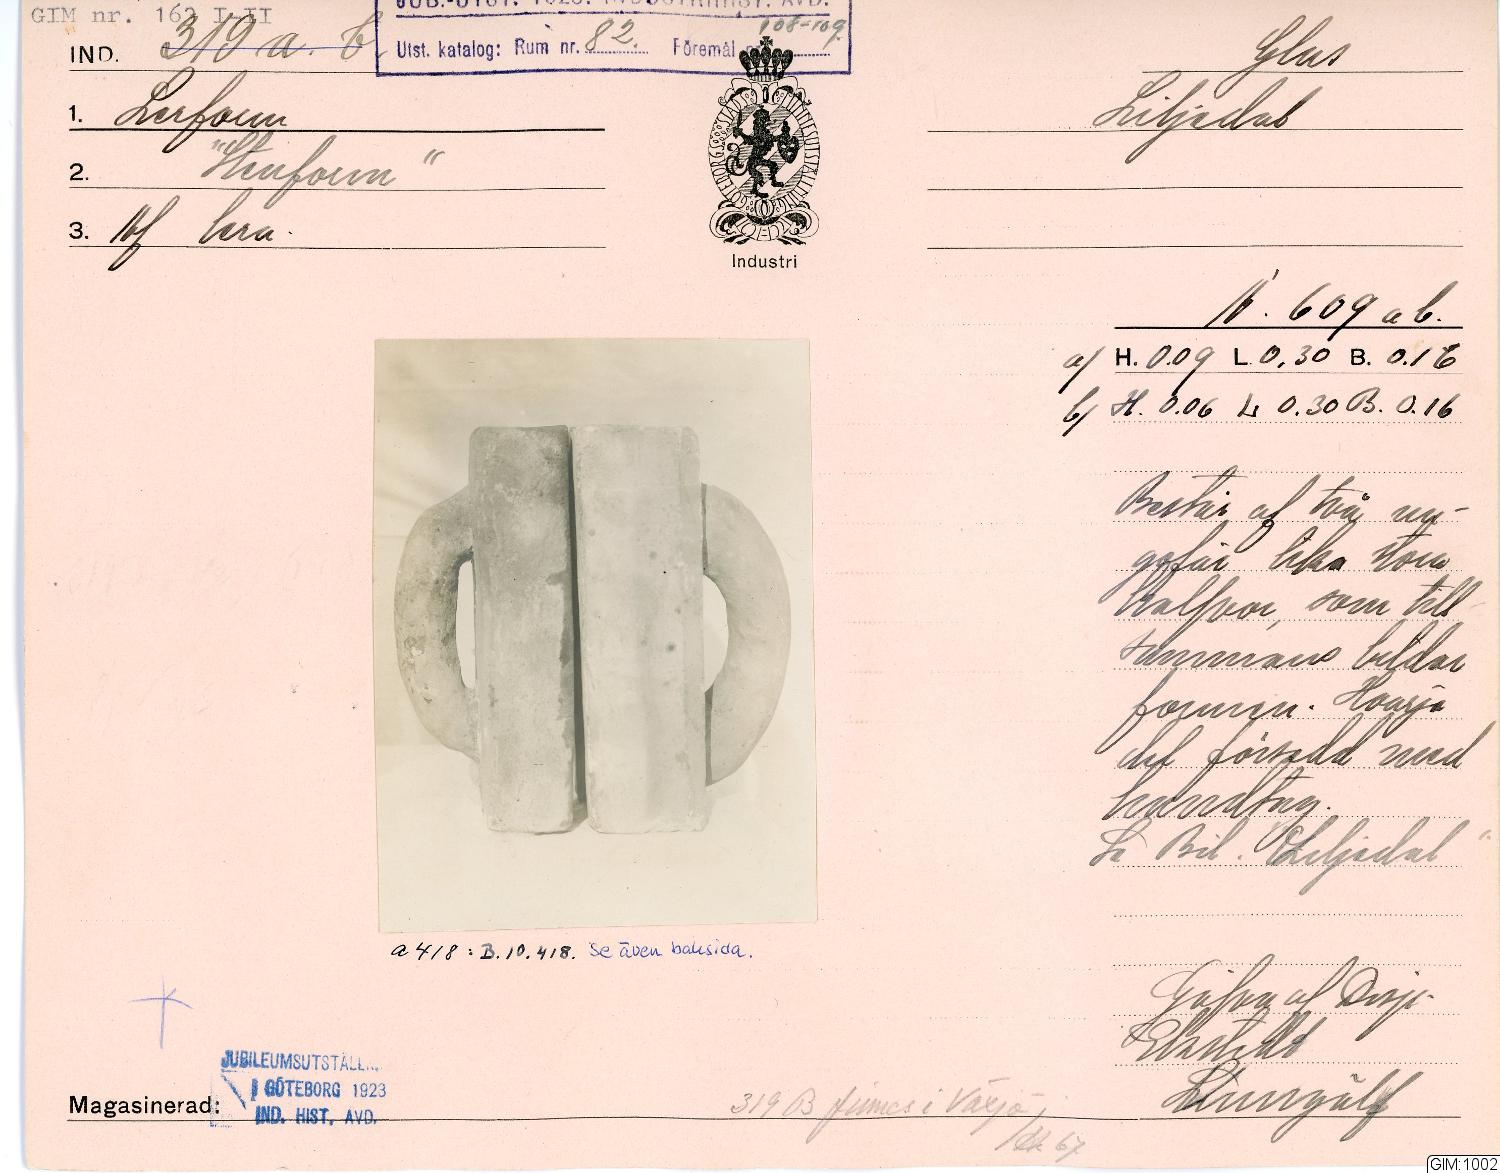 GIM nr. 162 I-II
JUB.-UTST. 1923. INDUSTRIHIST. AVD.
IND. 319 a. b.
Utst. katalog: Rum nr. 82. Föremål 108-109
Glas
1. Lerform
Liljedal
2. "Stenform"
3. Af lera.
GÖTEBORGS STADS MINNESUTSTÄLLNING
Industri
N. 609 a b.
a/ H. 0.09 L. 0,30 B. 0.16
b/ H. 0.06 L 0.30 B. 0.16
Består af två un-
gefär lika stora
halfvor, som till-
sammans bildar
formen. Hvarje
del försedd med
handtag.
Se Bil. "Liljedal"
a 418 : B.10.418. Se även baksida.
Gåfva af Disp.
Liungälf
JUBILEUMSUTSTÄLLN.
I GÖTEBORG 1923
IND. HIST. AVD.
Magasinerad:
319 B finnes i Växjö
67
GIM:1002